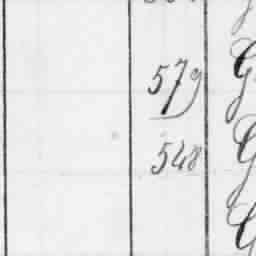 579 G
548 G
G